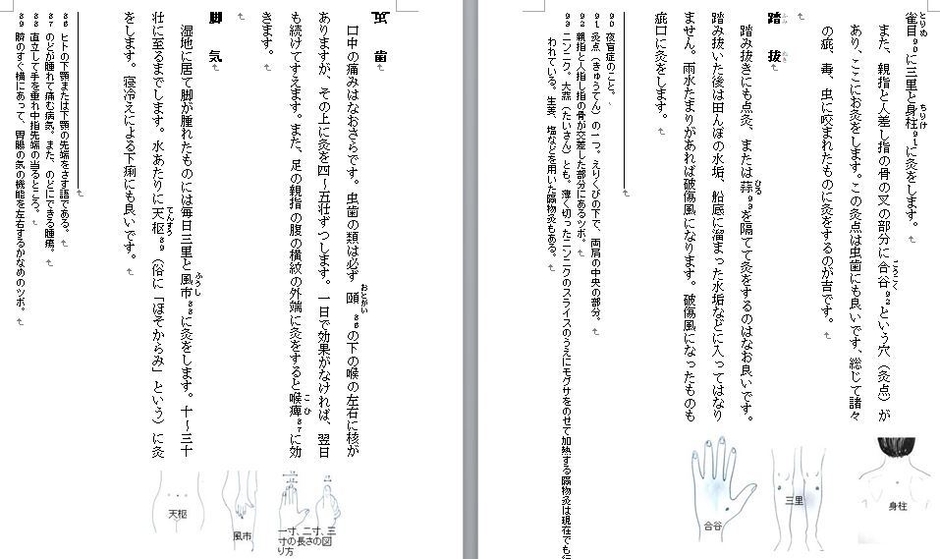 歯
口中の痛みはなおさらです。虫歯の類は必ず 頤おとがい86の下の喉の左右に核が
ありますが、その上に灸を四～五壮ずつします。一日で効果がなければ、翌日
も続けてすえます。また、足の親指の腹の横紋の外端に灸をすると喉痺こひ87に効
きます。
脚 気
湿地に居て脚が腫れたものには毎日三里と風市ふうし88に灸をします。十～三十
壮に至るまでします。水あたりに天枢てんすう89（俗に「ほそからみ」という）に灸
をします。寝冷えによる下痢にも良いです。
86 ヒトの下顎または下顎の先端をさす語である。
87 のどが腫れて痛む病気。また、のどにできる腫瘍。
88 直立して手を垂れ中指先端の当るところ。
89 臍のすぐ横にあって、胃腸の気の機能を左右するかなめのツボ。
一寸、二寸、三
寸の長さの図
り方
風市
天枢
雀目とりめ90に三里と身柱ちりけ91に灸をします。
また、親指と人差し指の骨の叉の部分に合谷ごうこく92という穴（灸点）が
あり、ここにお灸をします。この灸点は虫歯にも良いです、総じて諸々
の疵、毒、虫に咬まれたものに灸をするのが吉です。
踏 抜
踏み抜きにも点灸、または蒜ひる93を隔てて灸をするのはなお良いです。
踏み抜いた後は田んぼの水垢、船底に溜まった水垢などに入ってはなり
ません。雨水たまりがあれば破傷風になります。破傷風になったものも
疵口に灸をします。
90 夜盲症のこと。
91 灸点（きゅうてん）の一つ。えりくびの下で、両肩の中央の部分。
92 親指と人指し指の骨が交差した部分にあるツボ。
93 ニンニク。大蒜（たいさん）とも。薄く切ったニンニクのスライスのうえにモグサをのせて加熱する隔物灸は現在でも行
われている。生姜、塩などを用いた隔物灸もある。
身柱
三里
合谷